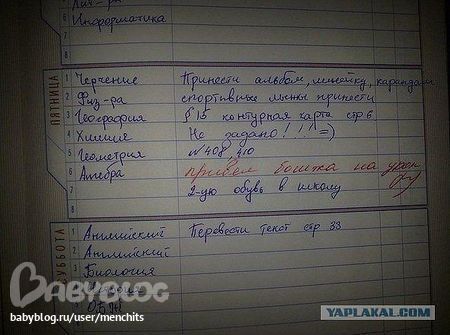 Лит-ра
6 Информатика
7
8
ПЯТНИЦА
1 Черчение Принести альбом, линейку, карандаш
2 Физ-ра спортивные лыжи принести
3 География § 15 контурная карта стр 6
4 Химия Не задано!!! =)
5 Геометрия № 408, 410
6 Алгебра пришел бошка на урок
7 2-ую обувь в школу
8
СУББОТА
1 Английский Перевести текст стр 33
2 Английский
3 Биология
ОБЖ
BABYBLOG
babyblog.ru/user/menchits
YAPLAKAL.COM